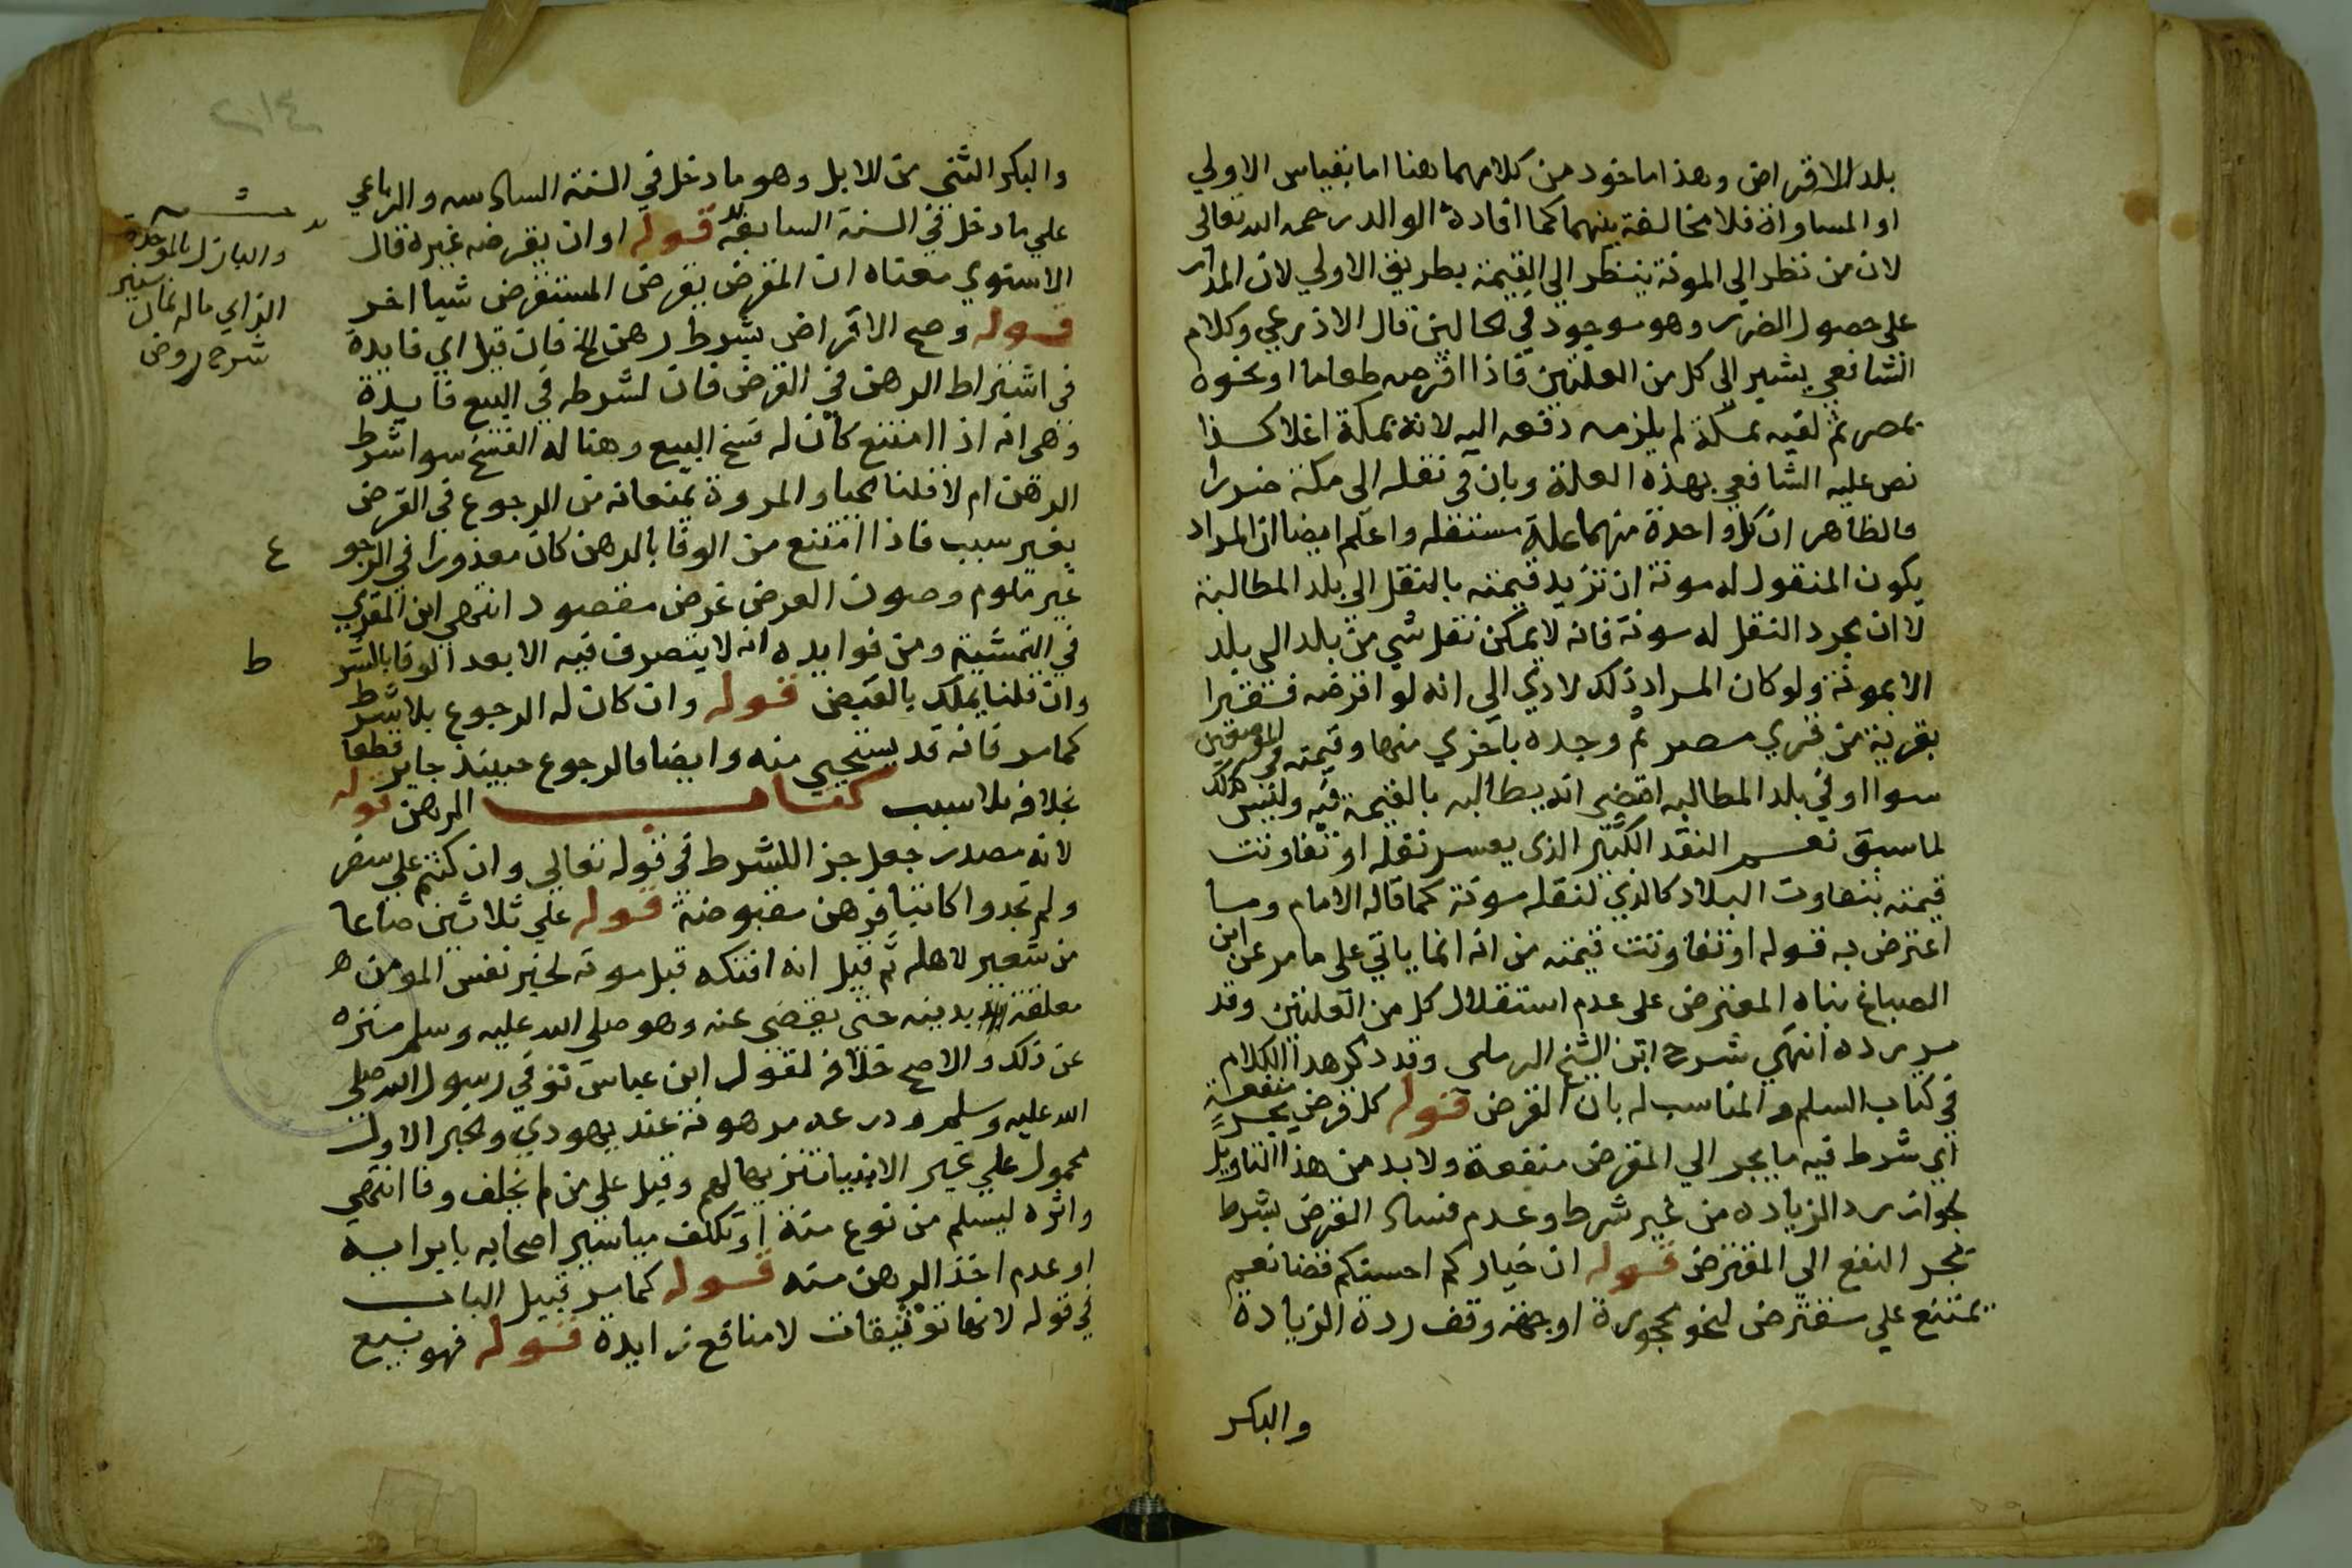 بلد الاقراض وهذا ماخوذ من كلامهما هنا اما بقياس الاولي
او المساواة فلا مخالفة بينهما كما افاده الوالد رحمه الله تعالى
لان من نظر الي المونة ينظر الي القيمة بطريق الاولي لان المدار
على حصول الضرر وهو موجود في الحالين قال الاذرعي وكلام
الشافعي يشير الي كل من العلتين فاذا اقرضه طعاما او نحوه
بمصر ثم لقيه بمكة لم يلزمه دفعه اليه لانه بمكة اغلا كذا
نص عليه الشافعي بهذه العلة وبان في نقله الى مكة ضررا
فالظاهر ان كل واحدة منهما علة مستقله واعلم ايضا ان المراد
بكون المنقول له مونة ان تزيد قيمته بالنقل الي بلد المطالبة
لا ان مجرد النقل له مونة فانه لا يمكن نقل شي من بلد الي بلد
الا بمونة ولو كان المراد ذلك لادي الي انه لو اقرضه فقيرا
بقرية من قري مصر ثم وجده باخري منها وقيمته في الموضعين
سوا او في بلد المطالبه اقتضي انه يطالبه بالقيمة فيه وليس كذلك
لما سبق نعم النقد الكثير الذى يعسر نقله او تفاوتت
قيمته بتفاوت البلاد كالذي لنقله مونة كما قاله الامام وما
اعترض به قوله او تفاوتت قيمته من انه انما ياتي على ما مر عن ابن
الصباغ بناه المعترض على عدم استقلال كل من العلتين وقد
مر رده انتهي شرح ابن الشيخ الرملى وقد ذكر هذا الكلام
في كتاب السلم والمناسب له بان القرض قوله كل قرض يجر منفعة
اي شرط فيه ما يجر الي المقرض منفعة ولا بد من هذا التاويل
لجواز رد الزياده من غير شرط وعدم فساد القرض بشرط
تجر النفع الي المقترض قوله ان خياركم احسنكم قضا نعم
يمتنع علي مقترض لنحو محجوره او جهة وقف ردة الزيادة
والبكر
والبكر الثني من الابل وهو ما دخل في السنة السادسه والرباعي
علي ما دخل في السنة السابعة قوله او ان يقرضه غيره قال
الاسنوي معناه ان المقرض يقرض المستقرض شيا اخر
قوله وصح الاقراض بشرط رهن الخ فان قيل اي فايدة
في اشتراط الرهن في القرض فان لشرطه في البيع فايدة
وهى انه اذا امتنع كان له فسخ البيع وهنا له الفسخ سوا شرط
الرهن ام لا قلنا الحيا والمروة يمنعانه من الرجوع في القرض
بغير سبب فاذا امتنع من الوفا بالرهن كان معذورا في الرجوع
غير ملوم وصون العرض غرض مقصود انتهي ابن المقري
في التمشية ومن فوايده انه لا يتصرف فيه الا بعد الوفا بالشرط
وان قلنا يملك بالقبض قوله وان كان له الرجوع بلا شرط
كما مر فانه قد يستحيي منه وايضا فالرجوع حينيذ جايز قطعا
بخلافه بلا سبب كتاب الرهن قوله
لانه مصدر جعل جزا للشرط في قوله تعالي وان كنتم علي سفر
ولم تجدوا كاتبا فرهن مقبوضة قوله علي ثلاثين صاعا
من شعير لاهله ثم قيل انه افتكه قبل موته لخبر نفس المومن
معلقة بدينه حتى يقضى عنه وهو صلي الله عليه وسلم منزه
عن ذلك والاصح خلافه لقول ابن عباس توفي رسول الله صلى
الله عليه وسلم ودرعه مرهونة عند يهودي والخبر الاول
محمول علي غير الانبيا تنزيها لهم وقيل علي من لم يخلف وفا انتهي
واثره ليسلم من نوع منة او تكلف مياسير اصحابه بابرايه
او عدم اخذ الرهن منه قوله كما مر قبيل الباب
في قوله لانها توثيقات لا منافع زايدة قوله فهو نبيع
والبازل بالموحدة
الزاي ماله ثمان سنين
شرح روض